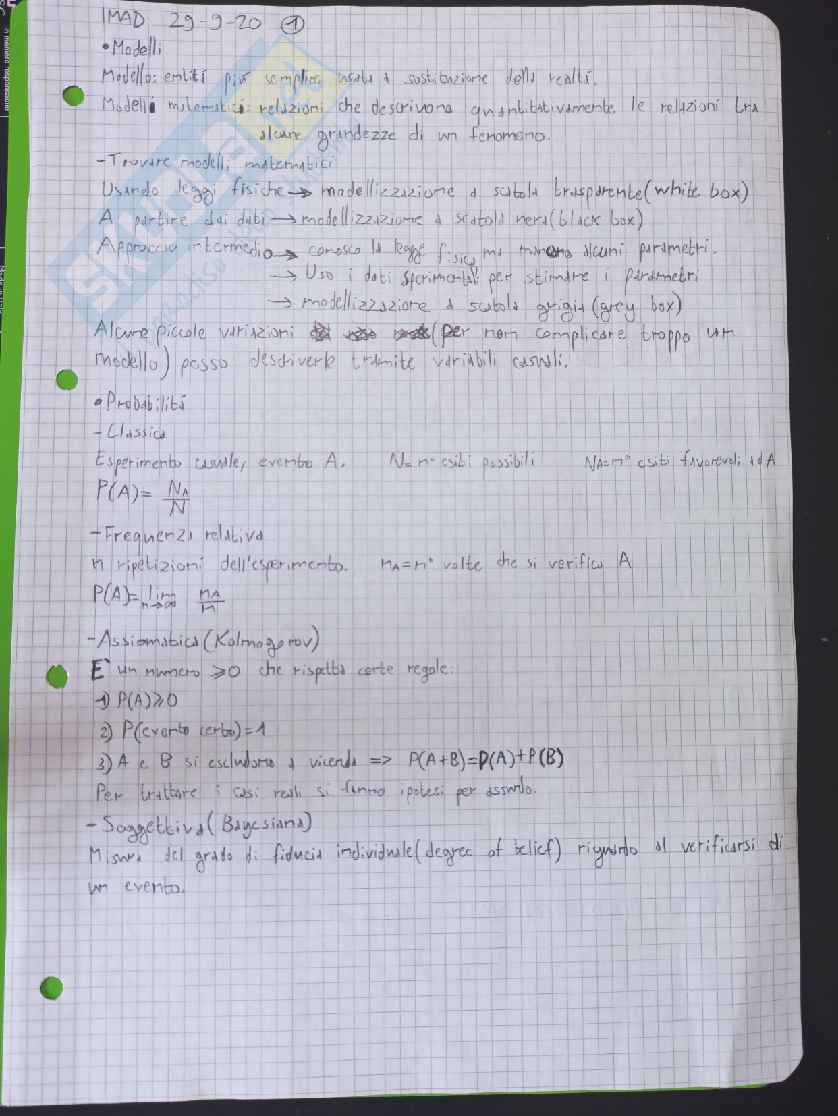 IMAD 29-9-20 ①
• Modelli
Modello: entità più semplice usata a sostituzione della realtà.
Modelli matematici: relazioni che descrivono quantitativamente le relazioni tra
alcune grandezze di un fenomeno.
- Trovare modelli matematici
Usando leggi fisiche → modellizzazione a scatola trasparente (white box)
A partire dai dati → modellizzazione a scatola nera (black box)
Approccio intermedio → conosco la legge fisica ma mancano alcuni parametri.
→ Uso i dati sperimentali per stimare i parametri
→ modellizzazione a scatola grigia (grey box)
Alcune piccole variazioni (per non complicare troppo un
modello) posso descriverle tramite variabili casuali.
• Probabilità
- Classica
Esperimento casuale, evento A. N = n° esiti possibili N_A = n° esiti favorevoli ad A
P(A) = N_A / N
- Frequenza relativa
n ripetizioni dell'esperimento. n_A = n° volte che si verifica A
P(A) = lim n→∞ n_A / n
- Assiomatica (Kolmogorov)
E' un numero ≥0 che rispetta certe regole:
1) P(A)≥0
2) P(evento certo)=1
3) A e B si escludono a vicenda => P(A+B)=P(A)+P(B)
Per trattare i casi reali si fanno ipotesi per assurdo.
- Soggettiva (Bayesiana)
Misura del grado di fiducia individuale (degree of belief) riguardo al verificarsi di
un evento.
SKUOLA